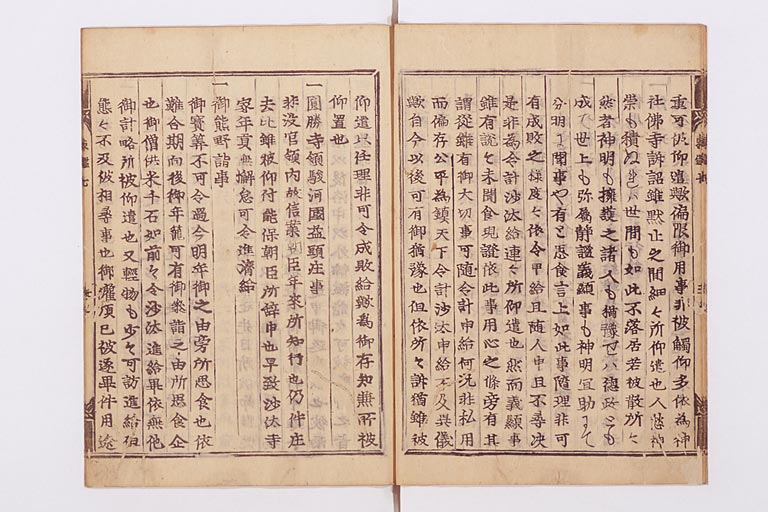 重可被仰遣歟偏限御用事非被觸仰多依為神
社佛寺訴詔雖默止之間細々所仰遣也人愁神
崇も積ぬ世間も如此不落居若被散所々
愁者神明も擁護之諸人も
成て世上も弥属静謐義顕事も神明冥助
分明聞事や有と思食言上如此事随理非可
有成敗之様度々依令申給且随人申且不尋决
是非為令計沙汰給連々所仰遣也然而義顕事
雖有説々未聞食現證依此事用心之條旁有其
謂従雖有御大切事可随令計申給何況非私用
而偏存公平為鎮天下令計沙汰申給不及異儀
歟自今以後可有御猶豫也但依所々訴猶雖被
仰遣以任理非可令成敗給歟為御存知無所被
仰置也
一圓勝寺領駿河國益頭庄事
非没官領内故信業朝臣年来所知行也仍件庄
夫比雖被仰付能保朝臣所辞申也早致沙汰寺
家年貢無懈怠可令進濟給
一御熊野詣事
御寶筭不可令過今明年御之由旁所思食也依
難合期向後御年籠可有御参詣之由所思食企
也御僧供米千石如前々令沙汰進給畢依無他
御計略所被仰遣也又輕物も少々可訪進給但
態々不及被相尋事也御灌頂已被遂畢件用途